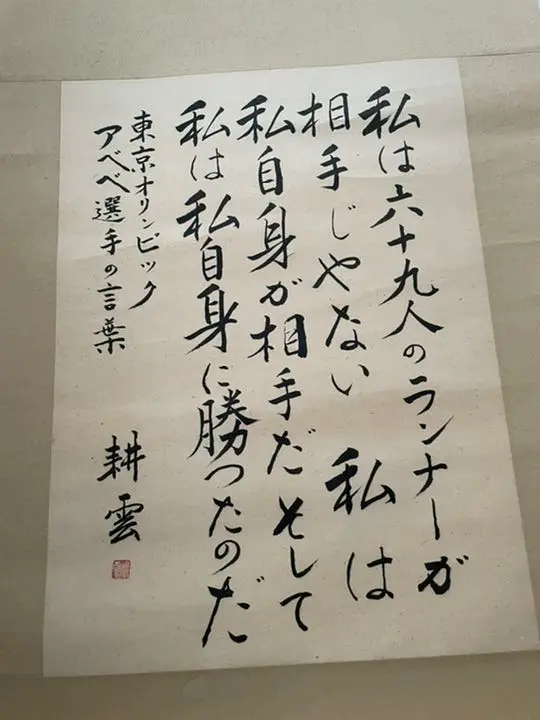 私は六十九人のランナーが
相手じやない 私は
私自身が相手だそして
私は私自身に勝つたのだ
東京オリンピック
アベベ選手の言葉
耕雲